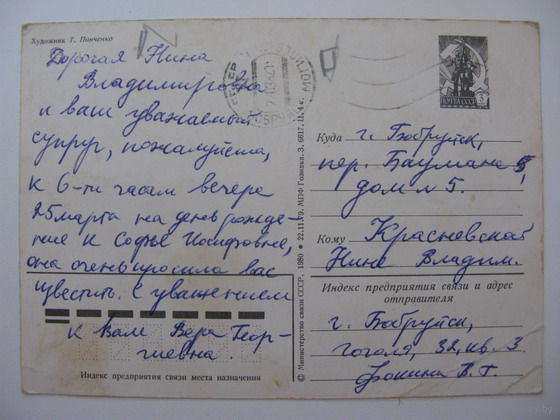 Художник Т. Панченко
Дорогая Нина
Владимировна
и ваш уважаемый
супруг, пожалуйста,
к 6-ти часам вечера
25 марта на день рожде-
ние к Софье Иосифовне,
она очень просила вас
известить. С уважением
к Вам Вера Геор-
гиевна.
Индекс предприятия связи места назначения
© Министерство связи СССР. 1980 ● 22.11.79. МПФ Гознака. З. 6617. Ц. 4 к.
ПОЧТА СССР
Куда г. Бобруйск,
пер. Баумана 5,
дом 5.
Кому Красневской
Нине Владим.
Индекс предприятия связи и адрес
отправителя
г. Бобруйск,
Гоголя, 32, кв. 3
Фокина В. Г.